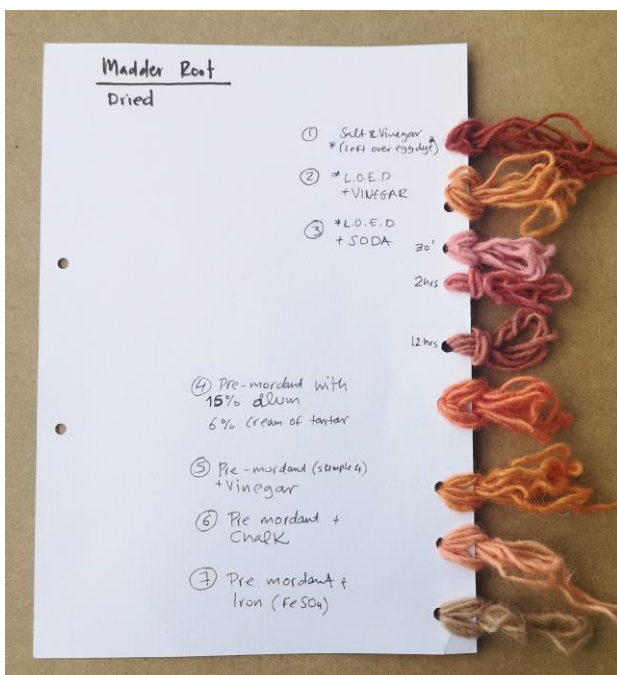 Madder Root
Dried
① Salt & Vinegar
*(left over egg dye)*
② *L.O.E.D
+ VINEGAR
③ *L.O.E.D
+ SODA
30'
2hrs
12 hrs
④ Pre-mordant with
15% alum
6% cream of tartar
⑤ Pre-mordant (sample 4)
+ Vinegar
⑥ Pre mordant +
Chalk
⑦ Pre. mordant +
Iron (FeSO4)